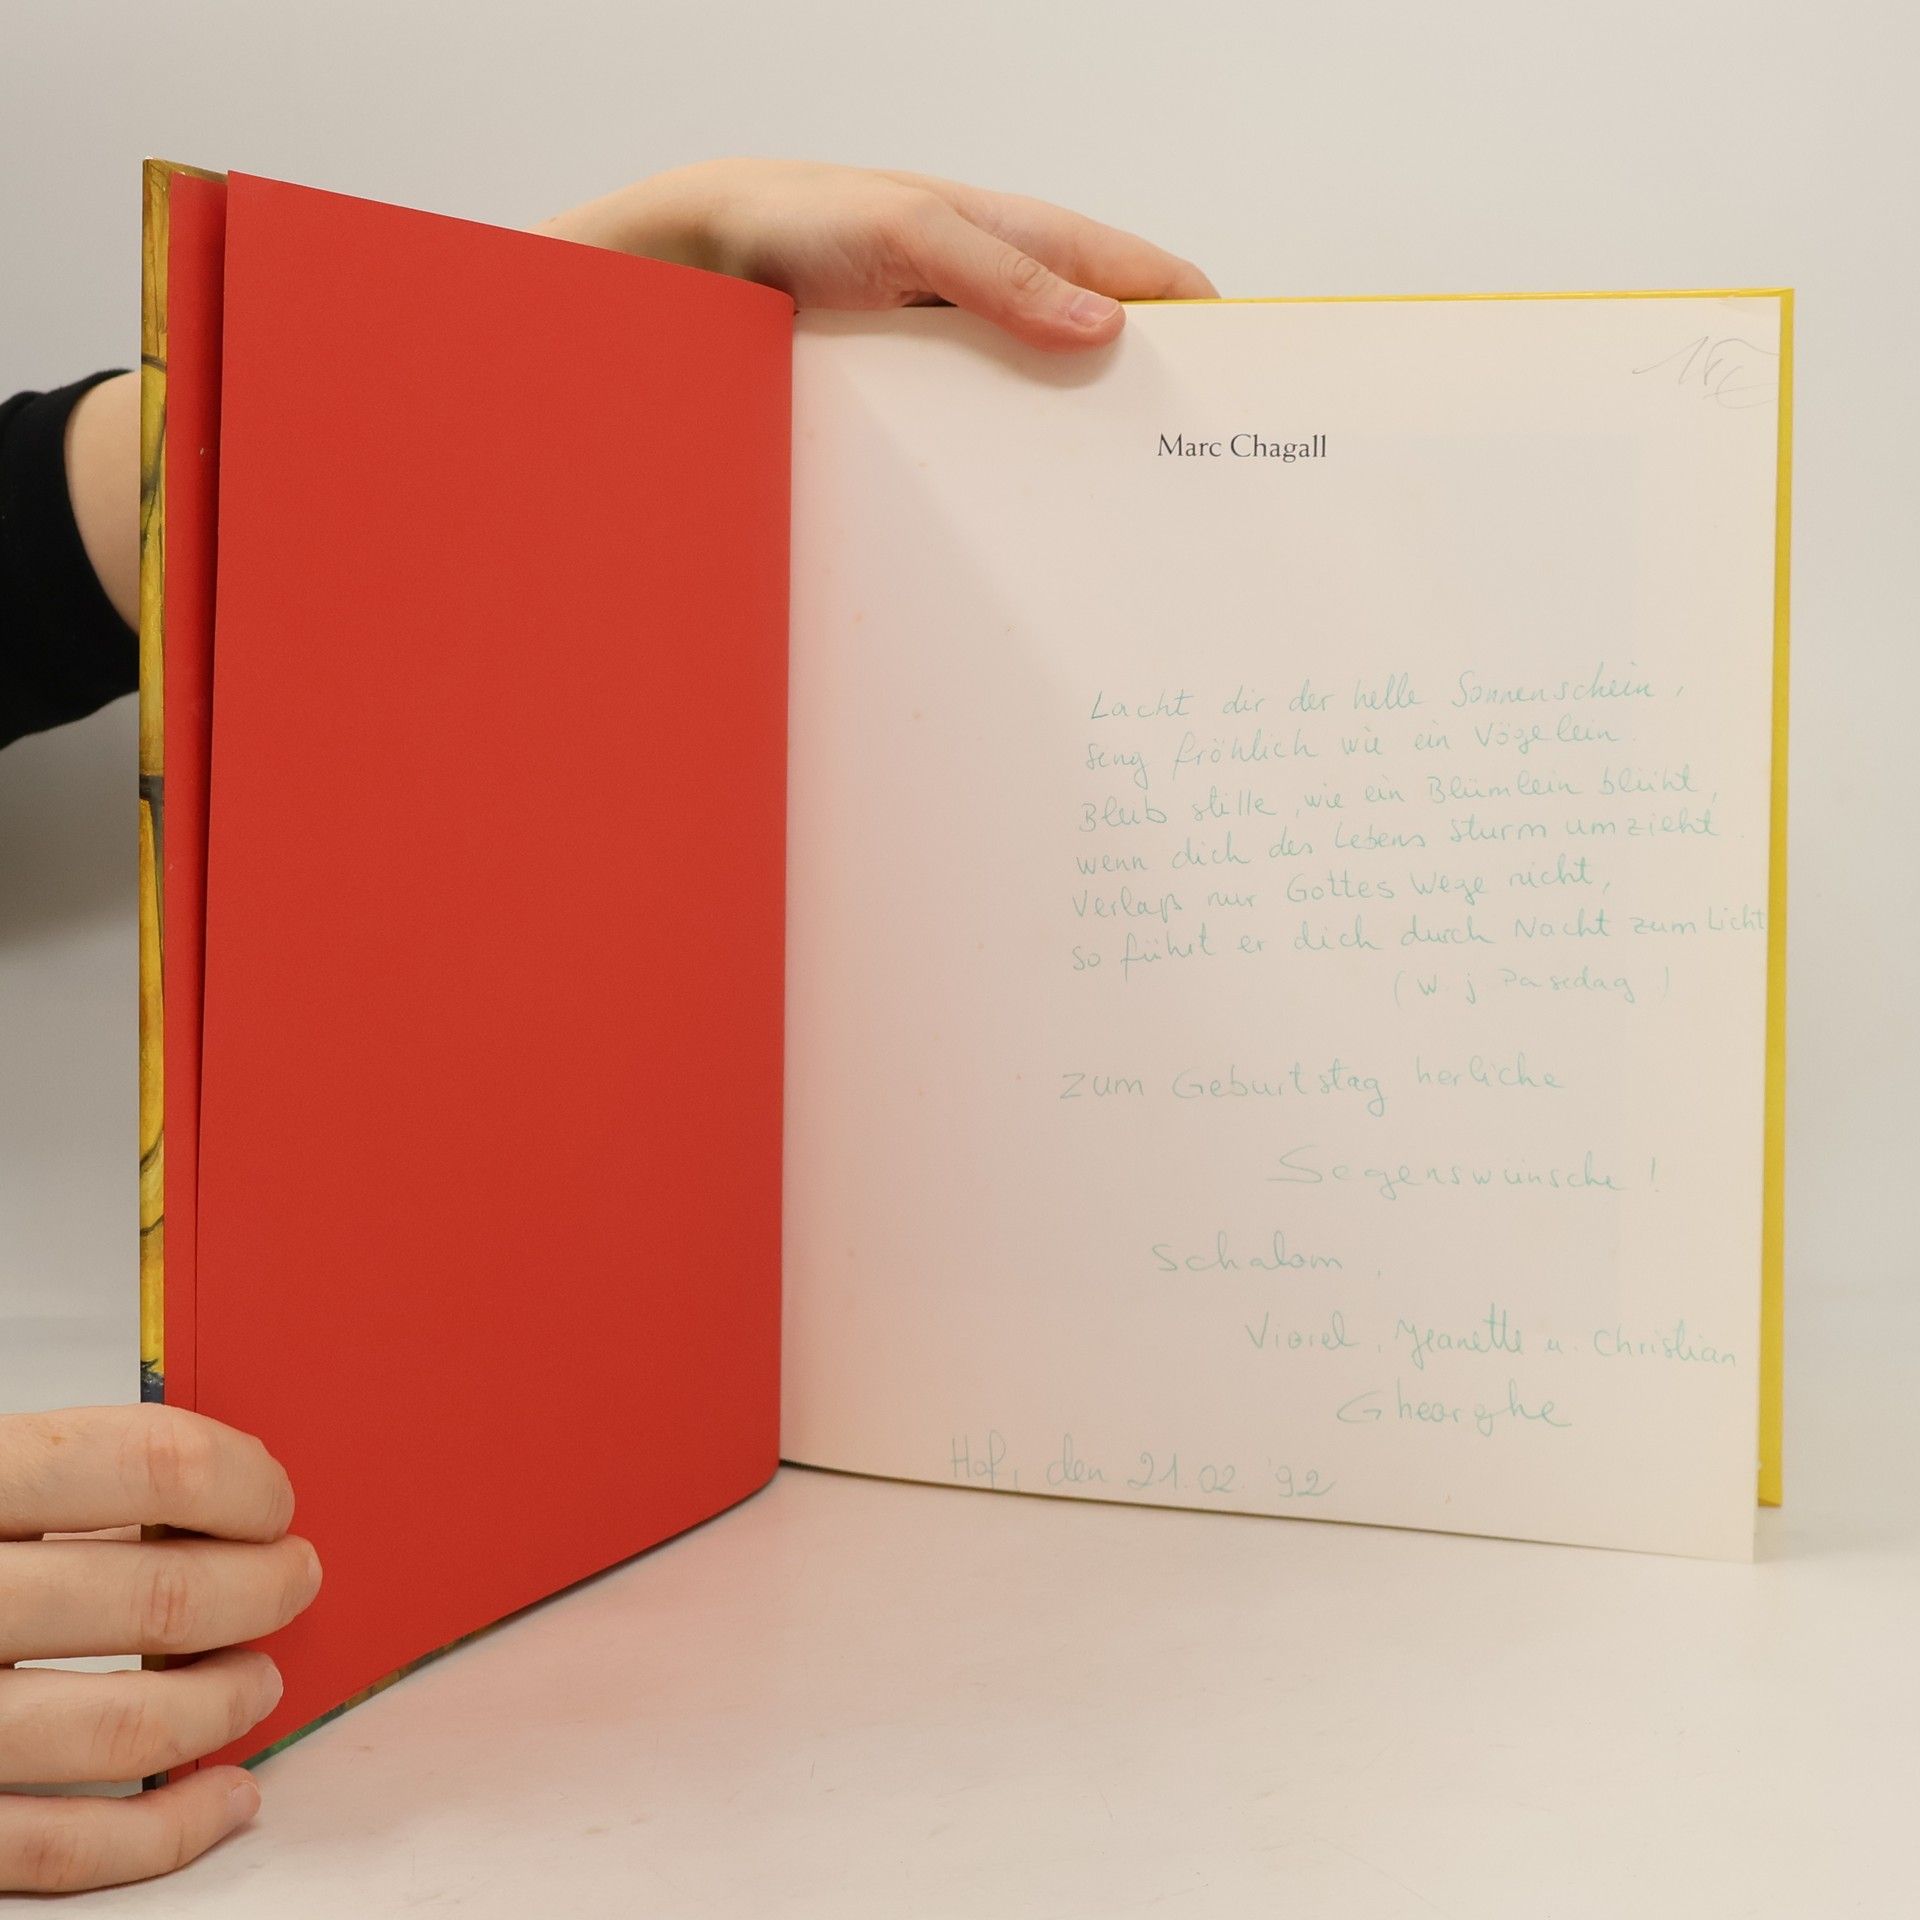 Marc Chagall
Lacht dir der helle Sonnenschein,
Sing fröhlich wie ein Vögelein.
Bleib stille, wie ein Blümlein blüht,
wenn dich des Lebens Sturm umzieht.
Verlaß nur Gottes Wege nicht,
so führt er dich durch Nacht zum Licht
(W. j Pasedag)
Zum Geburtstag herliche
Segenswünsche!
Schalom,
Viorel, Jeanette u. Christian
Gheorghe
Hof, den 21.02.'92